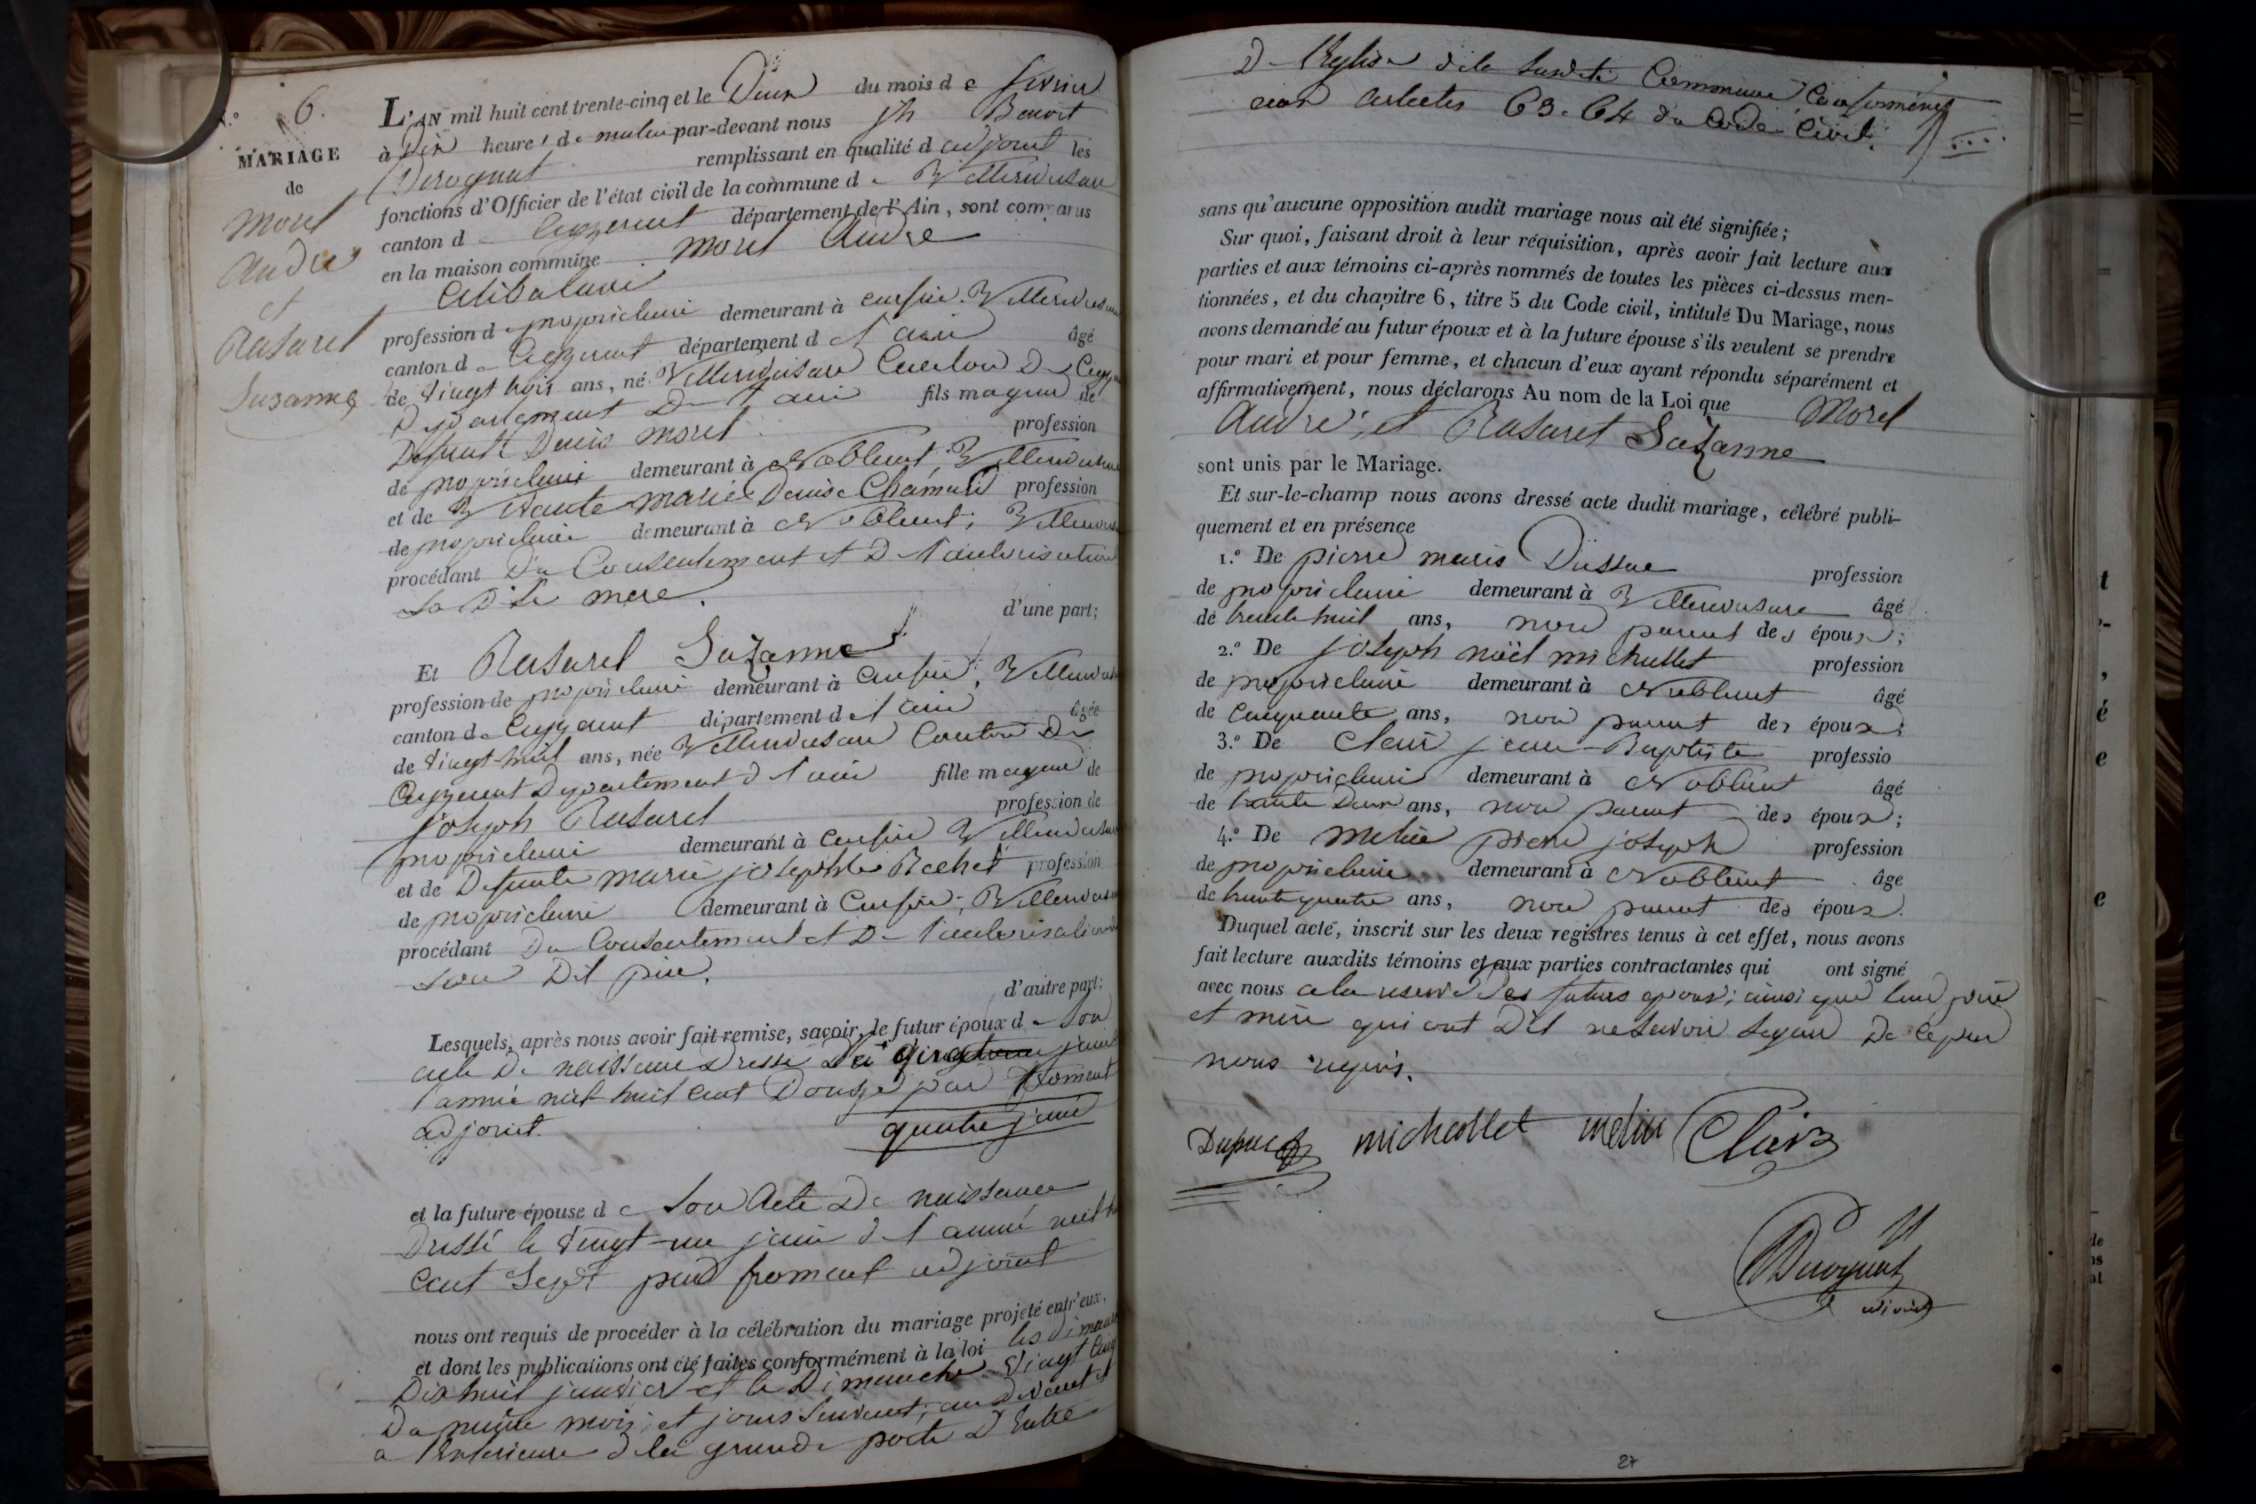 N.° 6.
MARIAGE
de
Morel
André
et
Rasurel
Suzanne
L'AN mil huit cent trente-cinq et le Deux du mois de fevrier
à Dix heures de matin par-devant nous jh Benoit
Duroguat remplissant en qualité d adjoint les
fonctions d'Officier de l'état civil de la commune de Villereversure
canton de Ceyzeriat département de l'Ain, sont comparus
en la maison commune Morel André
Célibataire
profession de propriétaire demeurant à Villereversure
canton de Ceyzeriat département de l'ain âgé
de vingt trois ans, né Villereversure Canton De Ceyz
Département De l'ain fils mageur de
Défunt Denis Morel profession
de propriétaire demeurant à Noblent, Villereversure
et de Vivante Marie Denise profession
de propriétaire demeurant à Noblent; Villereversure
procédant Du Consentement et De l'autorisation
Sa Dite mere. d'une part;
Et Rasurel Suzanne
profession de propriétaire demeurant à Villereversure
canton de Ceyzeriat département de l'ain âgée
de vingt-huit ans, née Villereversure Canton De
Ceyzeriat Département de l'ain fille mageure de
Joseph Rasurel profession de
propriétaire demeurant à Villereversure
et de Defunte marie josephte Rochet profession
de propriétaire demeurant à Villereversure
procédant Du Consentement et De l'autorisation de
Son Dit père. d'autre part;
Lesquels, après nous avoir fait remise, savoir, le futur époux de Son
acte De naissance Dressé Le
l'année mil huit cent Douze par froment
adjoint. quatre juin
et la future épouse de Son Acte De naissance
Dressé le vingt-un juin de l'année mil h
Cent Sept par froment adjoint
nous ont requis de procéder à la célébration du mariage projeté entr'eux,
et dont les publications ont été faites conformément à la loi les Dimanche
Dix huit janvier et le Dimanche vingt cinq
Du même mois; et jours Suivant; au Devant et
a l'Interieure de la grande porte D'Entré
De l'Eglise de la Susdite Commune Conformement
aux articles 63. 64 du Code Civil.
sans qu'aucune opposition audit mariage nous ait été signifiée;
Sur quoi, faisant droit à leur réquisition, après avoir fait lecture aux
parties et aux témoins ci-après nommés de toutes les pièces ci-dessus men-
tionnées, et du chapitre 6, titre 5 du Code civil, intitulé Du Mariage, nous
avons demandé au futur époux et à la future épouse s'ils veulent se prendre
pour mari et pour femme, et chacun d'eux ayant répondu séparément et
affirmativement, nous déclarons Au nom de la Loi que Morel
André; et Rasurel Suzanne
sont unis par le Mariage.
Et sur-le-champ nous avons dressé acte dudit mariage, célébré publi-
quement et en présence
1.° De pierre marie profession
de propriétaire demeurant à Villereversure âgé
de trente huit ans, non parent des époux;
2.° De joseph noël michallet profession
de propriétaire demeurant à Noblent âgé
de Cinquante ans, non parent des époux;
3.° De Clair jean-Baptiste professio
de propriétaire demeurant à Noblent âgé
de trente Deux ans, non parent des époux;
4.° De melin pierre joseph profession
de propriétaire demeurant à Noblent âgé
de trente quatre ans, non parent des époux.
Duquel acte, inscrit sur les deux registres tenus à cet effet, nous avons
fait lecture auxdits témoins et aux parties contractantes qui ont signé
avec nous a la reserve Des futurs epoux; ainsi que leur père
et mère qui ont Dit ne Savoir Signer De ce par
nous requis.
michallet melin Clair
adjoint
27